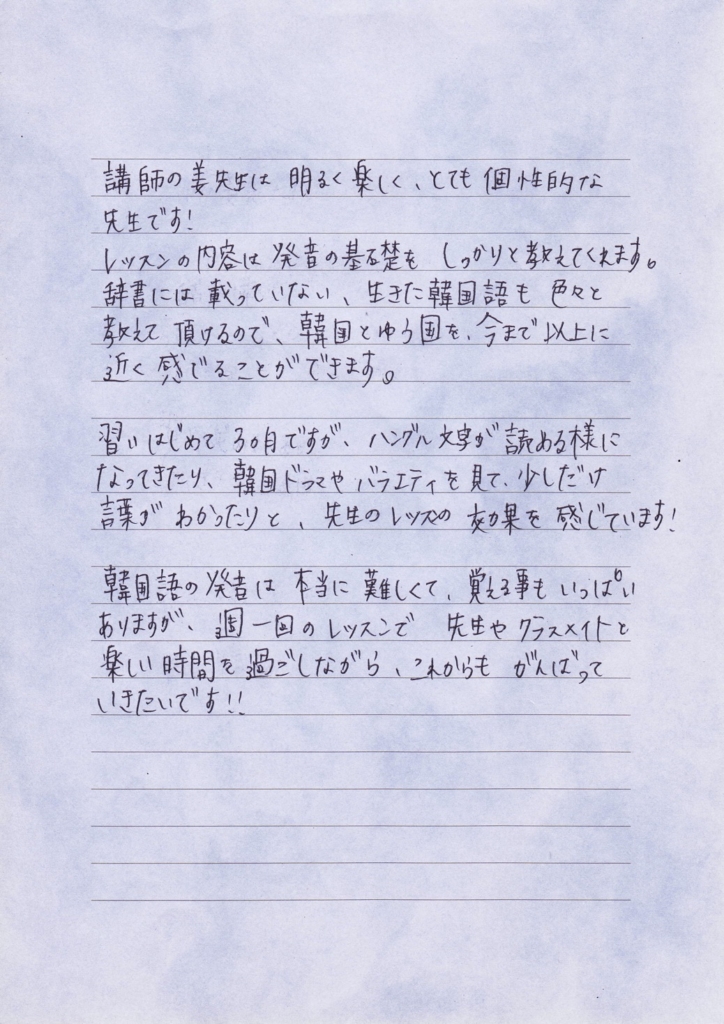 講師の姜先生は 明るく楽しく、とても個性的な
先生です!
レッスンの内容は発音の基礎を しっかりと教えてくれます。
辞書には載っていない、生きた韓国語も色々と
教えて頂けるので、韓国とゆう国を、今まで以上に
近く感じることができます。
習いはじめて 3ヶ月ですが、ハングル文字が読める様に
なってきたり、韓国ドラマやバラエティを見て、少しだけ
言葉が わかったりと、先生のレッスンの効果を感じています!
韓国語の発音は本当に難しくて、覚える事もいっぱい
ありますが、週一回のレッスンで 先生やクラスメイトと
楽しい時間を過ごしながら、これからも がんばって
いきたいです!!